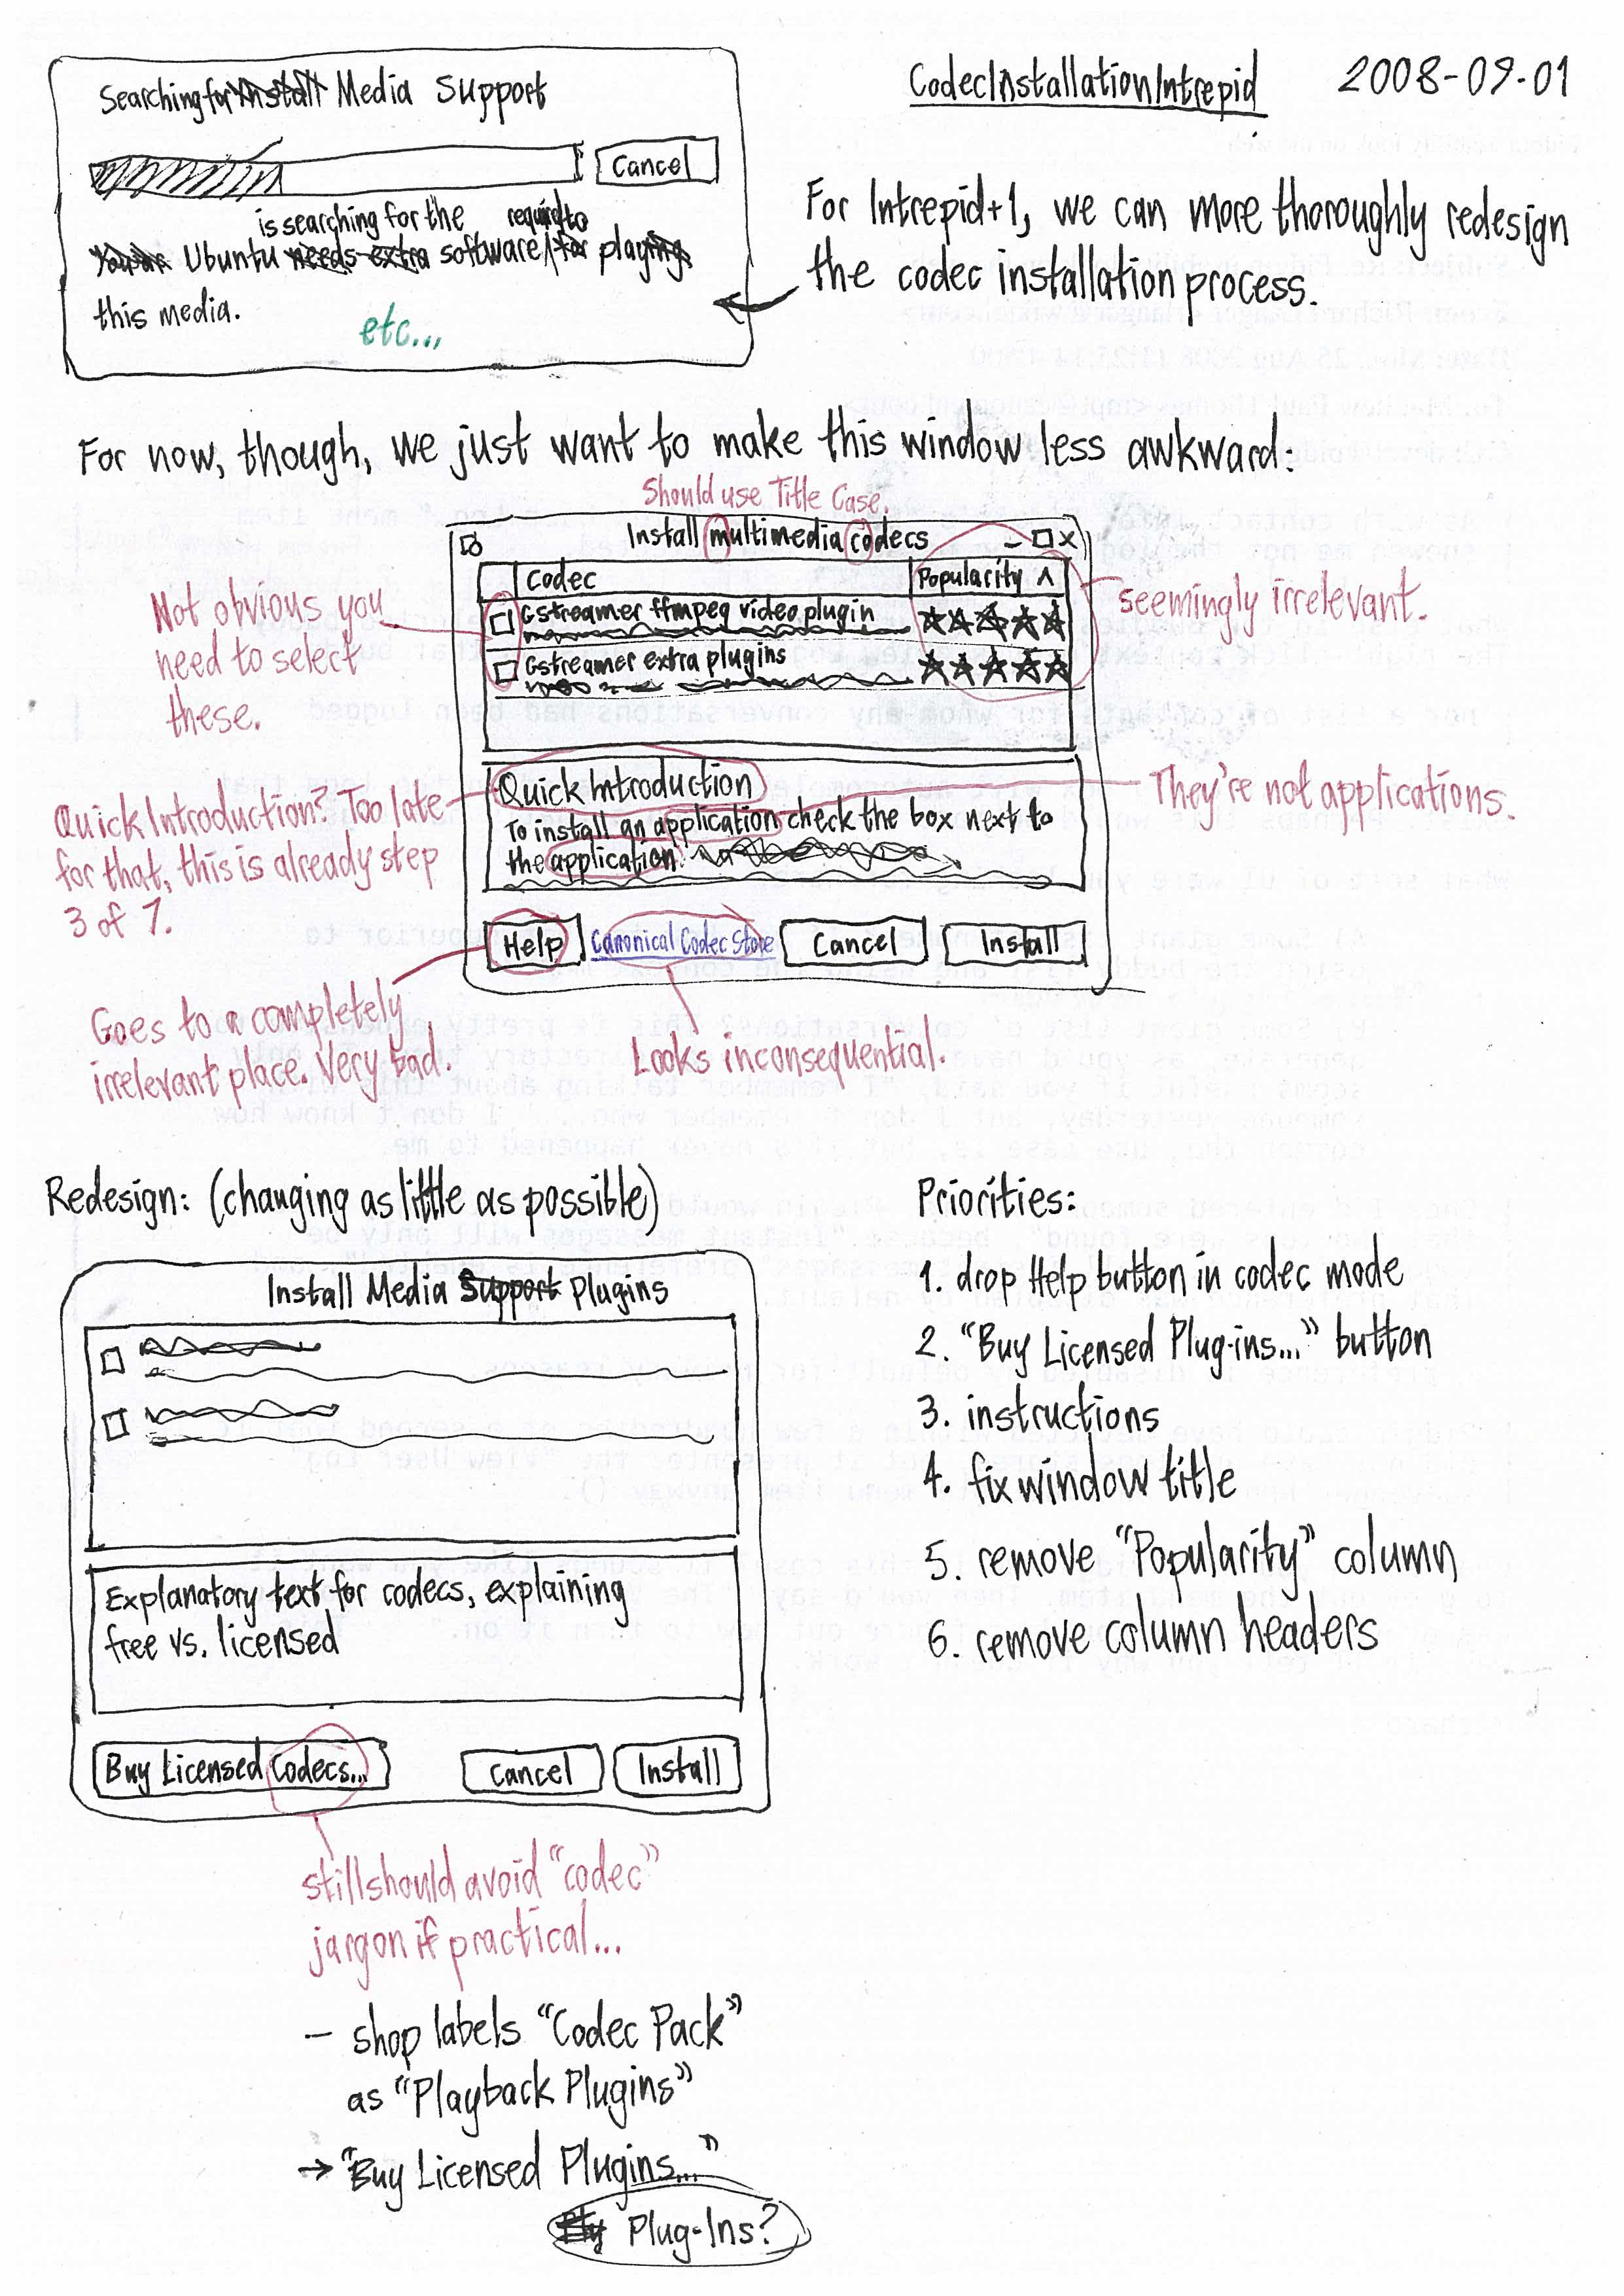 CodecInstallationIntrepid 2008-09-01
Searching for Install Media Support
Cancel
is searching for the required to
Ubuntu needs extra software for playing
this media.
etc...
For Intrepid+1, we can more thoroughly redesign
the codec installation process.
For now, though, we just want to make this window less awkward:
Should use Title Case.
Install multimedia codecs
Codec Popularity
Gstreamer ffmpeg video plugin
Gstreamer extra plugins
Not obvious you
need to select
these.
seemingly irrelevant.
Quick Introduction
To install an application check the box next to
the application.
They're not applications.
Quick Introduction? Too late
for that, this is already step
3 of 7.
Help Canonical Codec Store Cancel Install
Goes to a completely
irrelevant place. Very bad.
Looks inconsequential.
Redesign: (changing as little as possible)
Install Media Support Plugins
Explanatory text for codecs, explaining
free vs. licensed
Buy Licensed Codecs... Cancel Install
still should avoid "codec"
jargon if practical...
– shop labels "Codec Pack"
as "Playback Plugins"
→ "Buy Licensed Plugins..."
Plug-Ins?
Priorities:
1. drop Help button in codec mode
2. "Buy Licensed Plug-ins..." button
3. instructions
4. fix window title
5. remove "Popularity" column
6. remove column headers